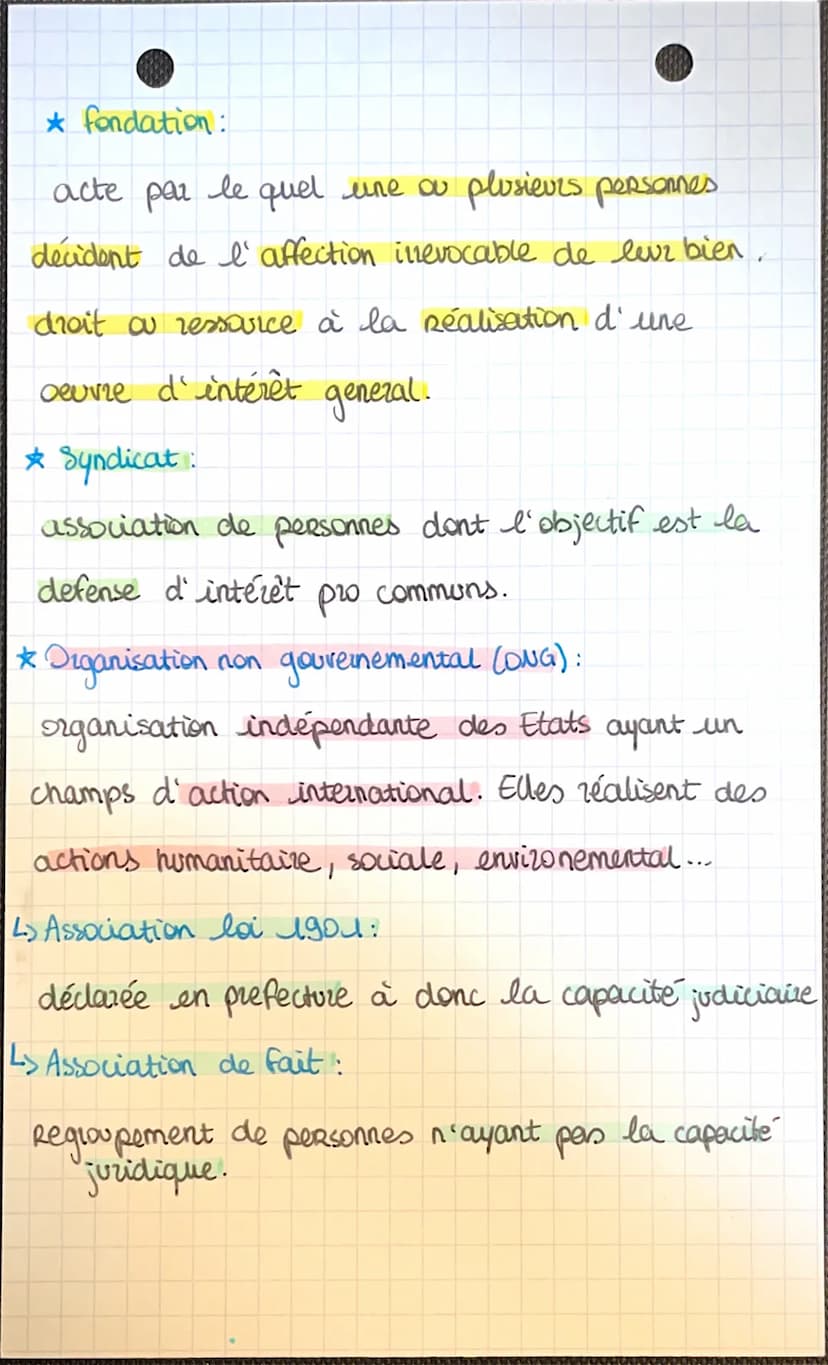 ★ fondation :
acte par le quel une ou plusieurs personnes
décident de l'affection irrevocable de leur bien,
droit ou ressource à la réalisation d'une
oeuvre d'intérêt general.
★ Syndicat :
association de personnes dont l'objectif est la
defense d'intérêt pro communs.
★ Organisation non gouvernemental (ONG) :
organisation indépendante des Etats ayant un
champs d'action international. Elles réalisent des
actions humanitaire, sociale, environemental...
↳ Association loi 1901 :
déclarée en prefecture à donc la capacité judiciaire
↳ Association de fait :
Regroupement de personnes n'ayant pas la capacité
juridique.